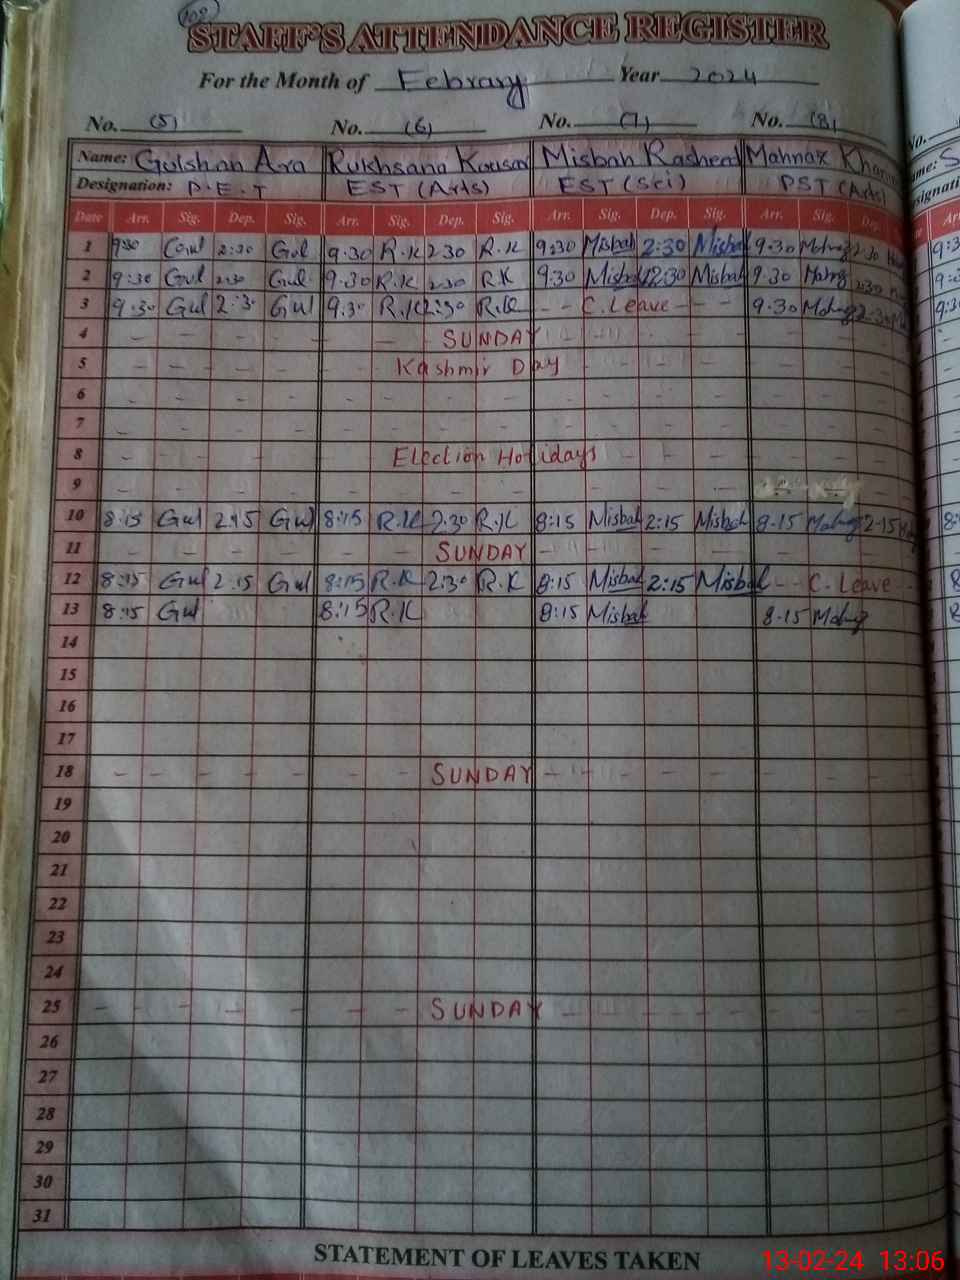 102
STAFF'S ATTENDANCE REGISTER
For the Month of Febrary Year 2024
No. (5) No. (6) No. (7) No. (8)
Name: Gulshan Ara Rukhsana Kousar Misbah Rasheed Mahnaz
Designation: P.E.T EST (Arts) EST (Sci) PST (Arts)
Date Arr. Sig. Dep. Sig. Arr. Sig. Dep. Sig. Arr. Sig. Dep. Sig. Arr. Sig. Dep.
1 9:30 Gul 2:30 Gul 9.30 R.K 2.30 R.K 9:30 Misbah 2:30 Misbah 9.30 Mahnaz 2.30
2 9:30 Gul 2:30 Gul 9.30 R.K 2.30 R.K 9:30 Misbah 2:30 Misbah 9.30 Mahnaz 2.30
3 9:30 Gul 2:30 Gul 9.30 R.K 2:30 R.K - - C. Leave - - - 9.30 Mahnaz 2.30
4 SUNDAY
5 Kashmir Day
6
7
8 Election Holidays
9
10 8:15 Gul 2:15 Gul 8:15 R.K 2.30 R.K 8:15 Misbah 2:15 Misbah 8.15 Mahnaz 2.15
11 SUNDAY
12 8:15 Gul 2:15 Gul 8:15 R.K 2:30 R.K 8:15 Misbah 2:15 Misbah - - C. Leave - -
13 8:15 Gul 8:15 R.K 8:15 Misbah 8.15 Mahnaz
14
15
16
17
18 SUNDAY
19
20
21
22
23
24
25 SUNDAY
26
27
28
29
30
31
STATEMENT OF LEAVES TAKEN
13-02-24 13:06